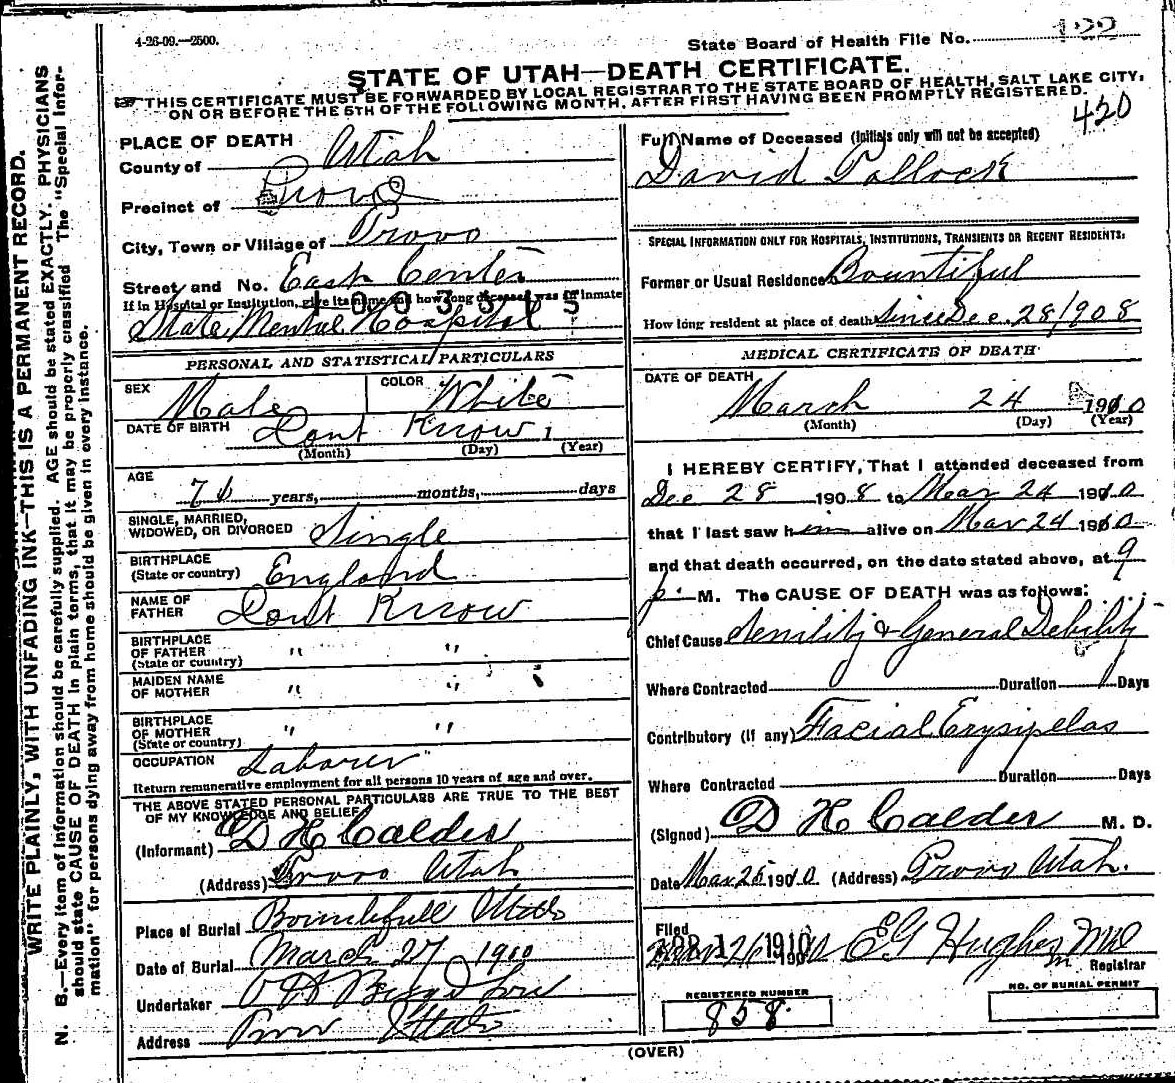 4-26-09.—2500.
State Board of Health File No. 122
STATE OF UTAH—DEATH CERTIFICATE.
THIS CERTIFICATE MUST BE FORWARDED BY LOCAL REGISTRAR TO THE STATE BOARD OF HEALTH, SALT LAKE CITY,
ON OR BEFORE THE 5TH OF THE FOLLOWING MONTH, AFTER FIRST HAVING BEEN PROMPTLY REGISTERED.
420
WRITE PLAINLY, WITH UNFADING INK—THIS IS A PERMANENT RECORD.
N. B.—Every item of information should be carefully supplied. AGE should be stated EXACTLY. PHYSICIANS
should state CAUSE OF DEATH in plain terms, that it may be properly classified The "Special Infor-
mation" for persons dying away from home should be given in every instance.
PLACE OF DEATH
County of Utah
Precinct of Provo
City, Town or Village of Provo
Street and No. East Center
If in Hospital or Institution, give its name and how long deceased was an inmate
State Mental Hospital
PERSONAL AND STATISTICAL PARTICULARS
SEX Male COLOR White
DATE OF BIRTH Dont Know
(Month) (Day) (Year)
AGE
years, months, days
SINGLE, MARRIED,
WIDOWED, OR DIVORCED Single
BIRTHPLACE
(State or country) England
NAME OF
FATHER Dont Know
BIRTHPLACE
OF FATHER " "
(State or country)
MAIDEN NAME
OF MOTHER " "
BIRTHPLACE
OF MOTHER " "
(State or country)
OCCUPATION Laborer
Return remunerative employment for all persons 10 years of age and over.
THE ABOVE STATED PERSONAL PARTICULARS ARE TRUE TO THE BEST
OF MY KNOWLEDGE AND BELIEF
(Informant) D H Calder
(Address) Provo Utah
Place of Burial Bountifull Utah
Date of Burial March 27 1910
Undertaker
Address Provo Utah
Full Name of Deceased (Initials only will not be accepted)
David Pollock
SPECIAL INFORMATION ONLY FOR HOSPITALS, INSTITUTIONS, TRANSIENTS OR RECENT RESIDENTS:
Former or Usual Residence Bountiful
How long resident at place of death since Dec. 28 1908
MEDICAL CERTIFICATE OF DEATH
DATE OF DEATH
March 24 1910
(Month) (Day) (Year)
I HEREBY CERTIFY, That I attended deceased from
Dec 28 1908 to Mar 24 1910
that I last saw him alive on Mar 24 1910
and that death occurred, on the date stated above, at 9
p. M. The CAUSE OF DEATH was as follows:
Chief Cause Senility & General Debility
Where Contracted Duration Days
Contributory (if any) Facial Erysipelas
Where Contracted Duration Days
(Signed) D H Calder M. D.
Date Mar 25 1910 (Address) Provo Utah.
Filed
APR 1 1910 E G Hughes Md
Registrar
REGISTERED NUMBER
858.
NO. OF BURIAL PERMIT
(OVER)